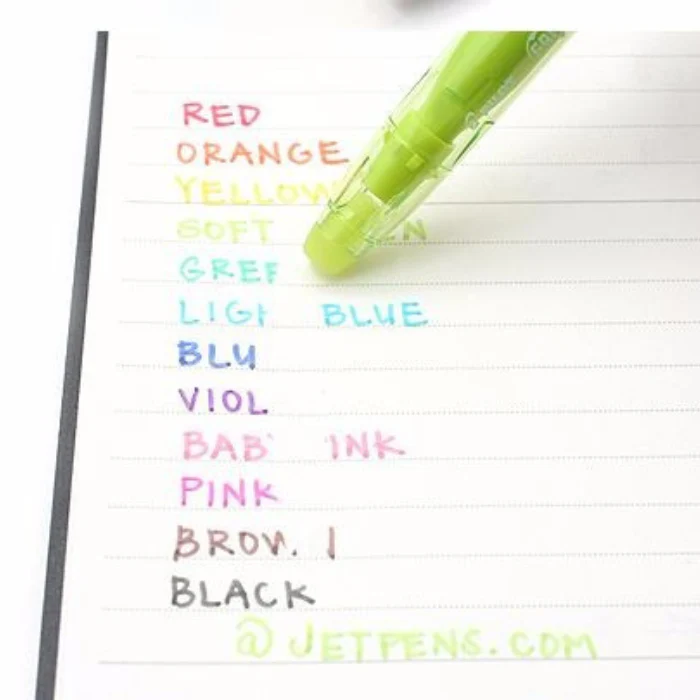 RED
ORANGE
YELLOW
SOFT EN
GREE
LIGH BLUE
BLU
VIOL
BAB INK
PINK
BROW
BLACK
@JETPENS.COM